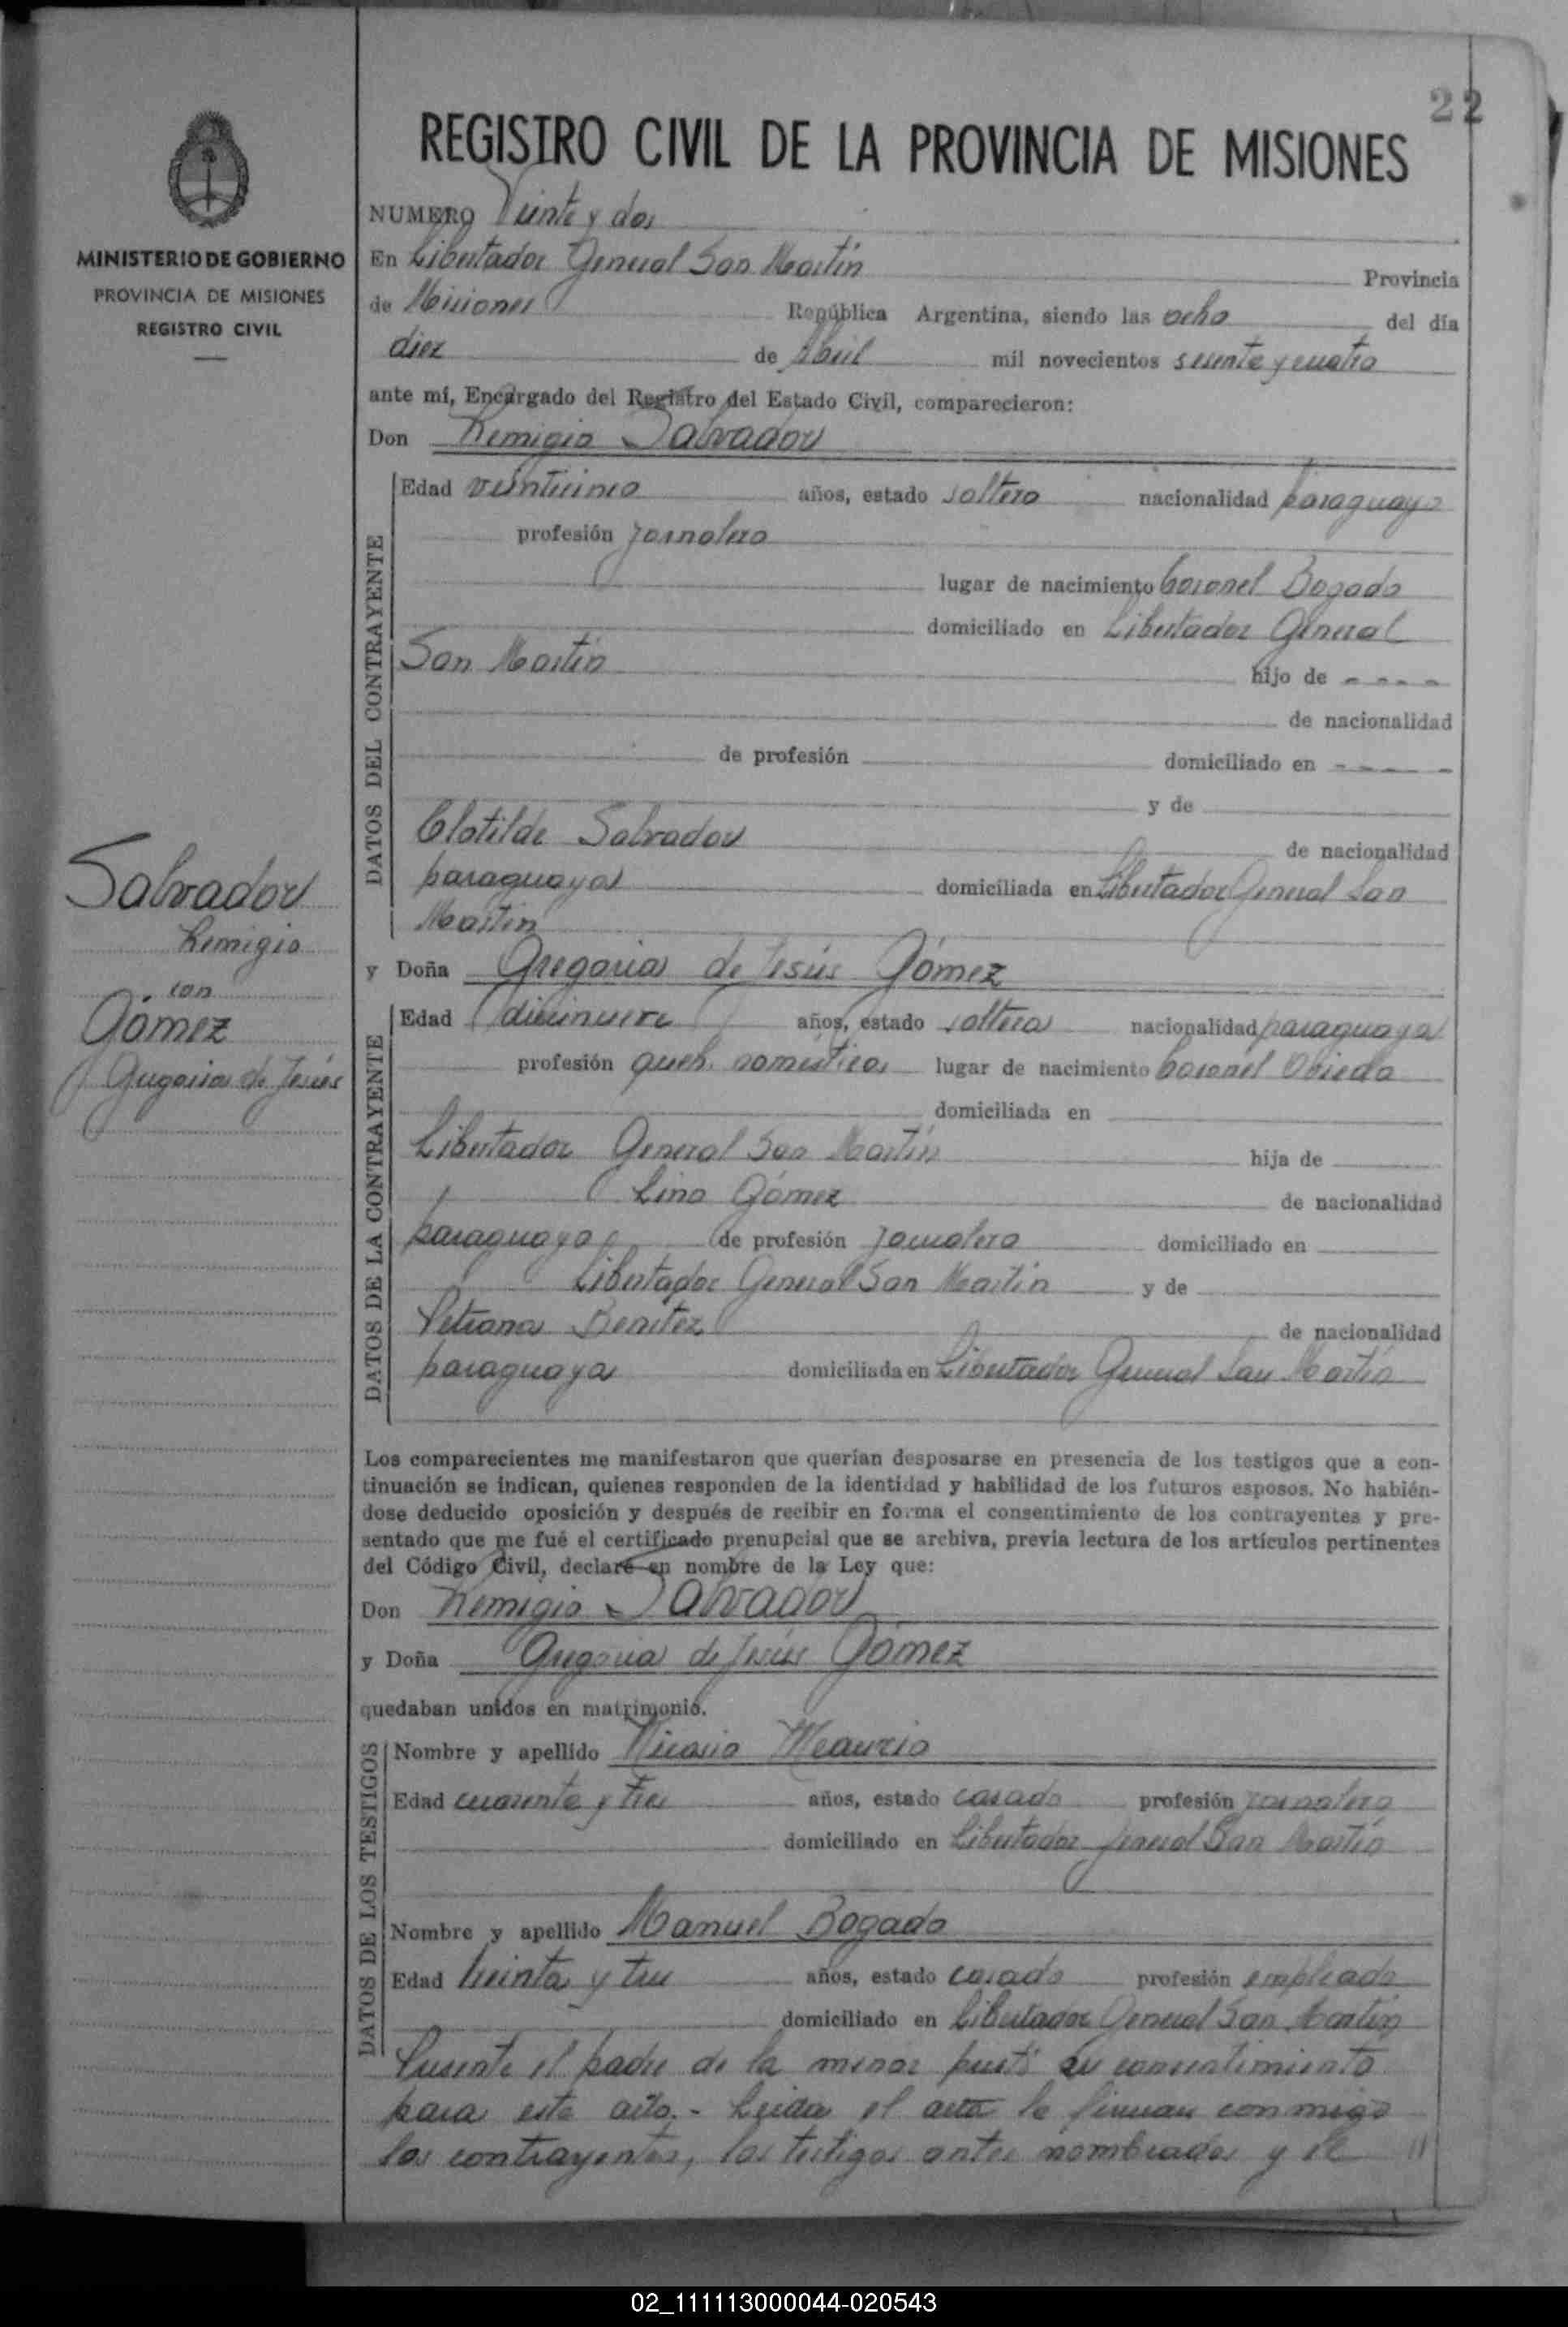 22
REGISTRO CIVIL DE LA PROVINCIA DE MISIONES
MINISTERIO DE GOBIERNO
PROVINCIA DE MISIONES
REGISTRO CIVIL
NUMERO Veinte y dos
En Libertador General San Martín Provincia
de Misiones República Argentina, siendo las ocho del día
diez de Abril mil novecientos sesenta y cuatro
ante mí, Encargado del Registro del Estado Civil, comparecieron:
Don Remigio Salvador
DATOS DEL CONTRAYENTE
Edad veinticinco años, estado soltero nacionalidad paraguayo
profesión jornalero
lugar de nacimiento Coronel Bogado
domiciliado en Libertador General
San Martín hijo de - - - -
de nacionalidad
de profesión domiciliado en - - - - -
y de
Clotilde Salvador de nacionalidad
paraguaya domiciliada en Libertador General San
Martín
Salvador
Remigio
con
Gómez
Gregoria de Jesús
y Doña Gregoria de Jesús Gómez
DATOS DE LA CONTRAYENTE
Edad diecinueve años, estado soltera nacionalidad paraguaya
profesión queh. domésticos lugar de nacimiento Coronel Oviedo
domiciliada en
Libertador General San Martín hija de
Lino Gómez de nacionalidad
paraguayo de profesión jornalero domiciliado en
Libertador General San Martín y de
Petrona Benítez de nacionalidad
paraguaya domiciliada en Libertador General San Martín
Los comparecientes me manifestaron que querían desposarse en presencia de los testigos que a con-
tinuación se indican, quienes responden de la identidad y habilidad de los futuros esposos. No habién-
dose deducido oposición y después de recibir en forma el consentimiento de los contrayentes y pre-
sentado que me fué el certificado prenupcial que se archiva, previa lectura de los artículos pertinentes
del Código Civil, declaré en nombre de la Ley que:
Don Remigio Salvador
y Doña Gregoria de Jesús Gómez
quedaban unidos en matrimonio.
DATOS DE LOS TESTIGOS
Nombre y apellido Nicasio Meaurio
Edad cuarenta y tres años, estado casado profesión jornalero
domiciliado en Libertador General San Martín
Nombre y apellido Manuel Bogado
Edad treinta y tres años, estado casado profesión empleado
domiciliado en Libertador General San Martín
Presente el padre de la menor prestó su consentimiento
para este acto.- Leida el acta la firman conmigo
los contrayentes, los testigos antes nombrados y el //
02_111113000044-020543